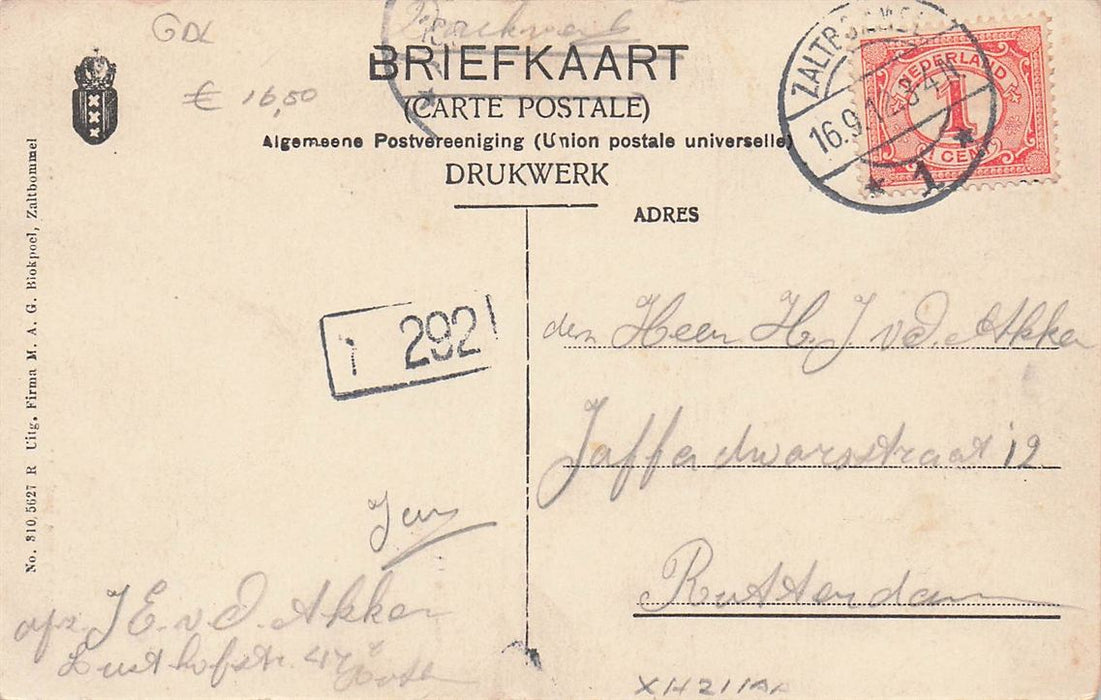 GDL
€ 16,50
Drukwerk
BRIEFKAART
(CARTE POSTALE)
Algemeene Postvereeniging (Union postale universelle)
DRUKWERK
ADRES
NEDERLAND
1
1 CENT
ZALTBOMMEL
16.9.12.3-4N
1
No. 310,5627 R Uitg. Firma M. A. G. Blokpoel, Zaltbommel
1 292
den Heer H. J v d. Akker
Jaffadwarsstraat 12
Rotterdam
afz. J E. v. d. Akker
Lusthofstr. 47
XH211AA